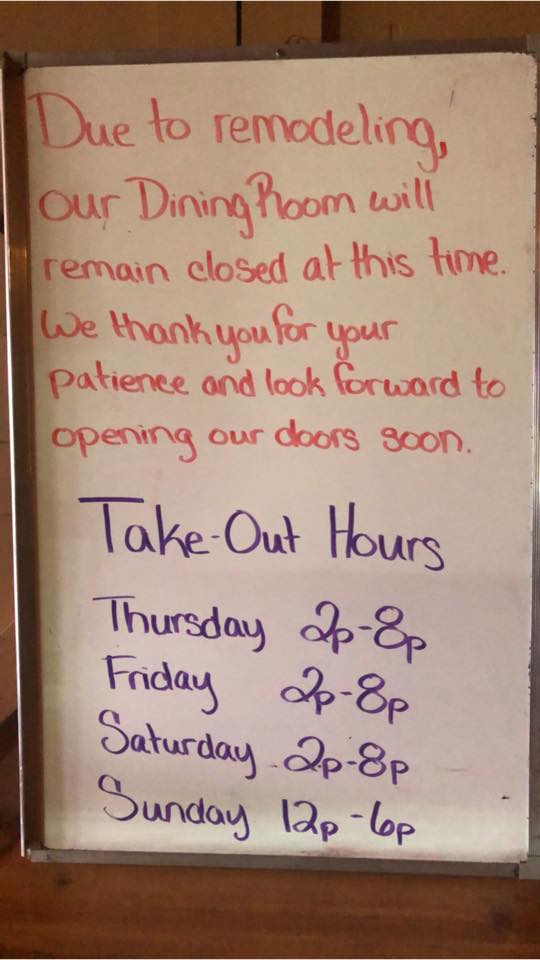 Due to remodeling,
our Dining Room will
remain closed at this time.
We thank you for your
patience and look forward to
opening our doors soon.
Take-Out Hours
Thursday 2p-8p
Friday 2p-8p
Saturday 2p-8p
Sunday 12p-6p